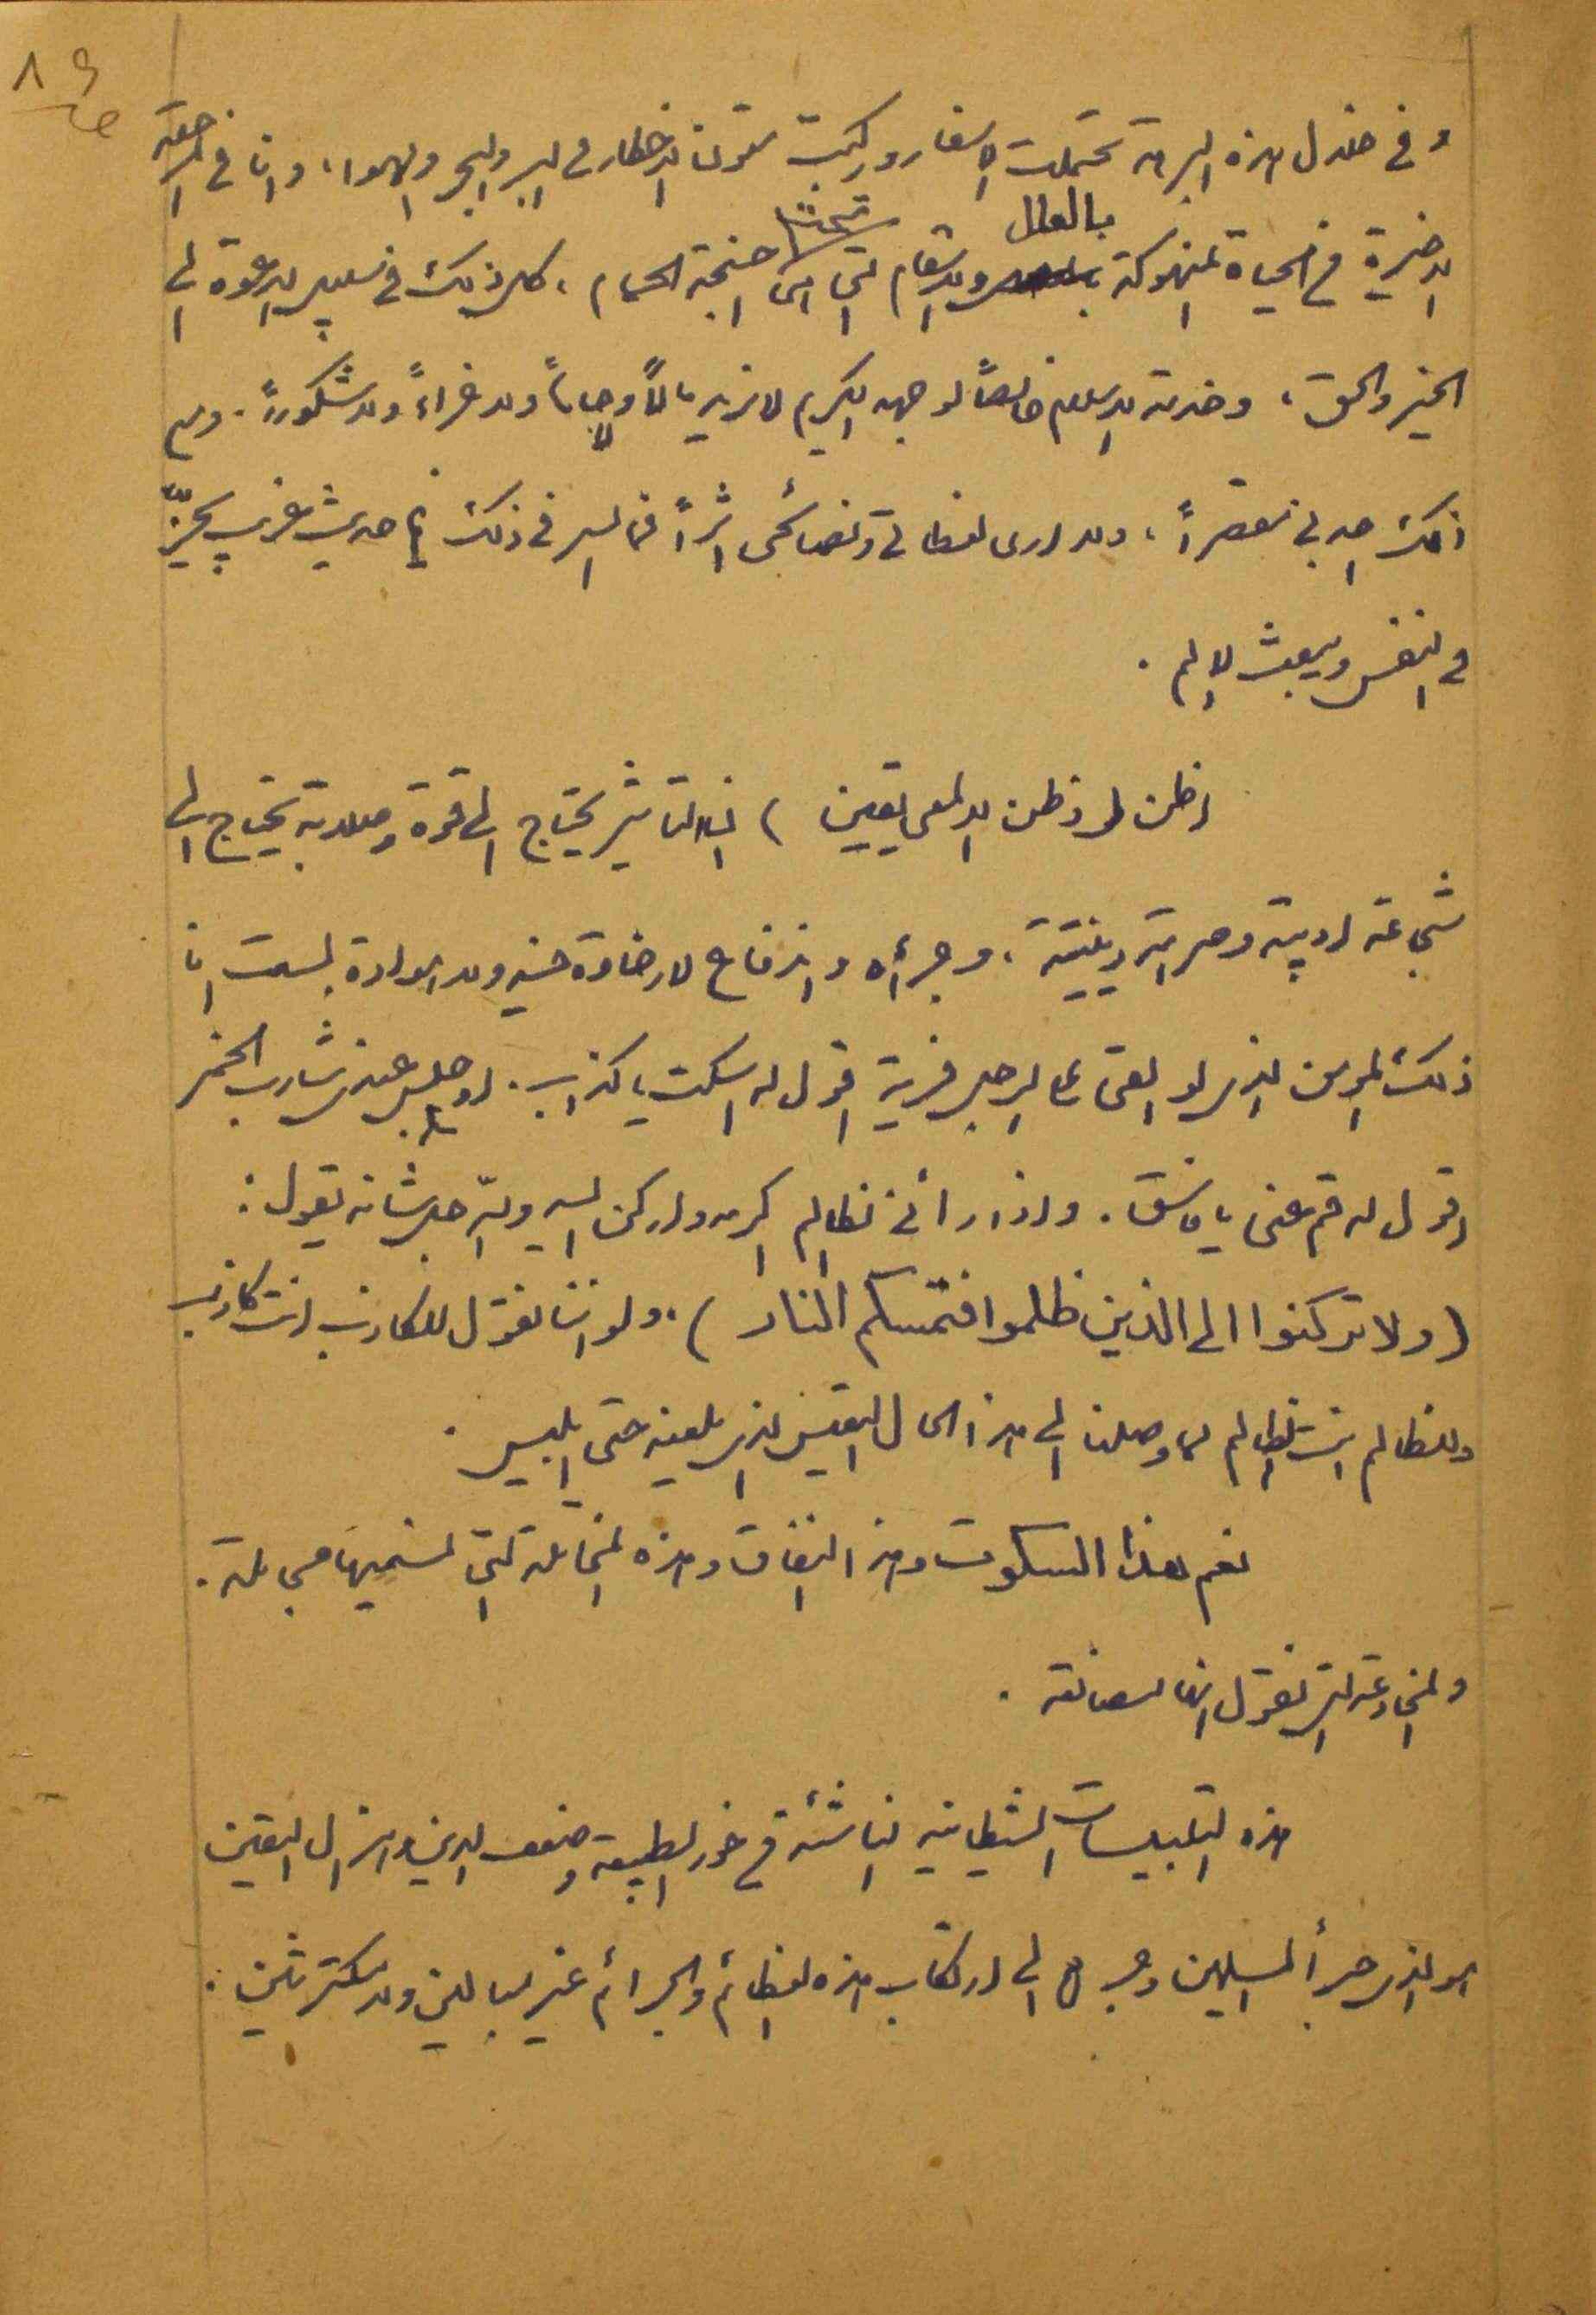 ٨٩
وفي خلال هذه البرهة تحملت الاسفار وركبت متون الاخطار في البر والبحر والهواء، وانا في المرحلة
الاخيرة في الحياة المنهوكة بالعلل والاسقام التي هي تحت اجنحة الحمام، كل ذلك في سبيل الدعوة الى
الخير والحق، وخدمة الاسلام خالصاً لوجهه الكريم لا نريد مالاً ولا جاهاً ولا جزاءً ولا شكوراً. ولم
اكن اجد بي مقصراً، ولا ارى لعظاتي ونصائحي اثراً فما السر في ذلك حديث غريب يحزّ
في النفس ويبعث الالم.
اظن (وظن الالمعي يقين) ان التأثير يحتاج الى قوة وصلابة يحتاج الى
شجاعة ادبية وصرامة دينية، وجرأة واندفاع لا رخاوة فيه ولا هوادة لست انا
ذلك المؤمن الذي لو القى عالم رجل فرية اقول له اسكت يا كذاب. او جلس عندي شارب الخمر
اقول له قم عني يا فاسق. واذا رأني ظالم اكرمه واركن اليه والله جل شانه يقول:
(ولا تركنوا الى الذين ظلموا فتمسكم النار). ولو اننا نقول للكاذب انت كاذب
وللظالم انت ظالم لما وصلنا الى هذا الحال التعيس الذي يلعنه حتى ابليس.
نعم هذا السكوت وهذا النفاق وهذه المخاتلة التي نسميها مجاملة.
والمخادعة التي نقول انها مصانعة.
هذه التلبيسات الشيطانية الناشئة في خور الطبيعة وضعف الدين وهزال اليقين
هو الذي جرأ المسلمين وجرهم الى ارتكاب هذه العظائم والجرائم غير مبالين ولا مكترثين.